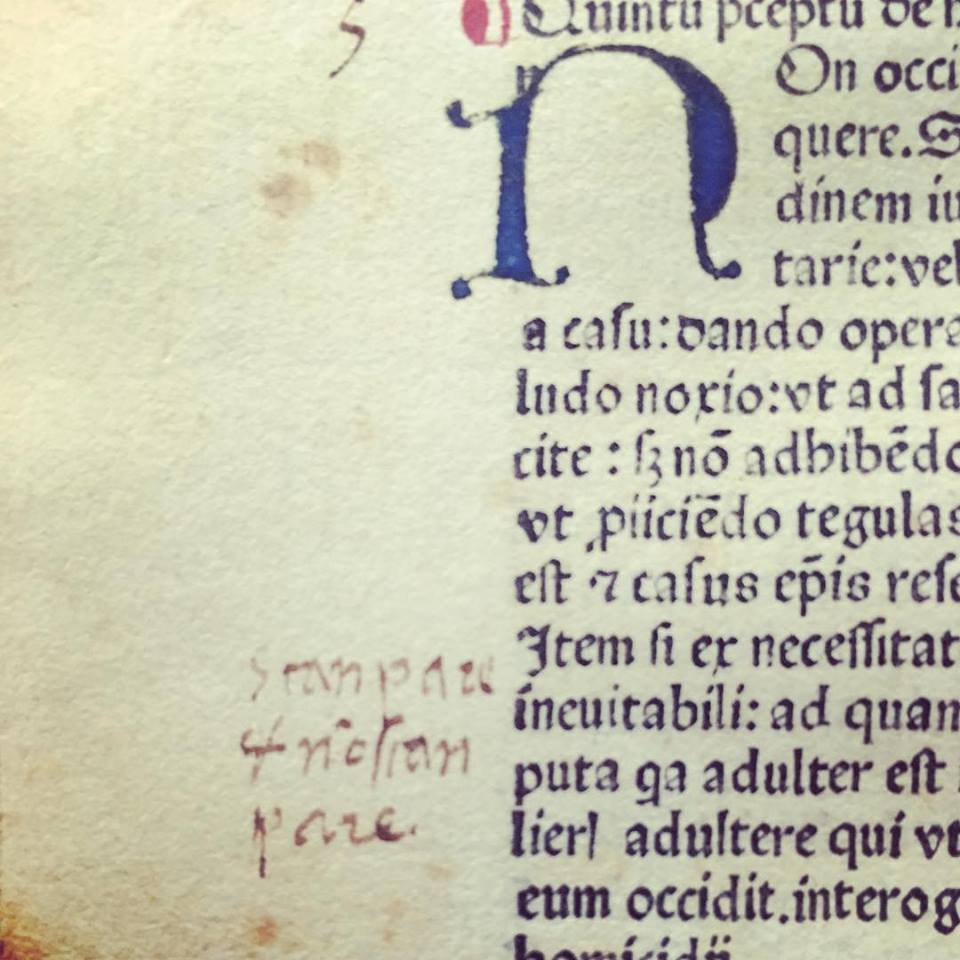 5
Quintū pceptū de
NOn occi
quere. S
dinem iu
tarie: vel
a caſu: dando opera
ludo noxio: vt ad ſa
cite : ſꝫ nō adhibēdo
vt ꝓiiciēdo tegulas
eſt ⁊ caſus ep̄is reſe
Item ſi ex neceſſitat
ineuitabili: ad quam
puta qa adulter eſt
adultere qui vt
eum occidit. interog
homicidii
pare.